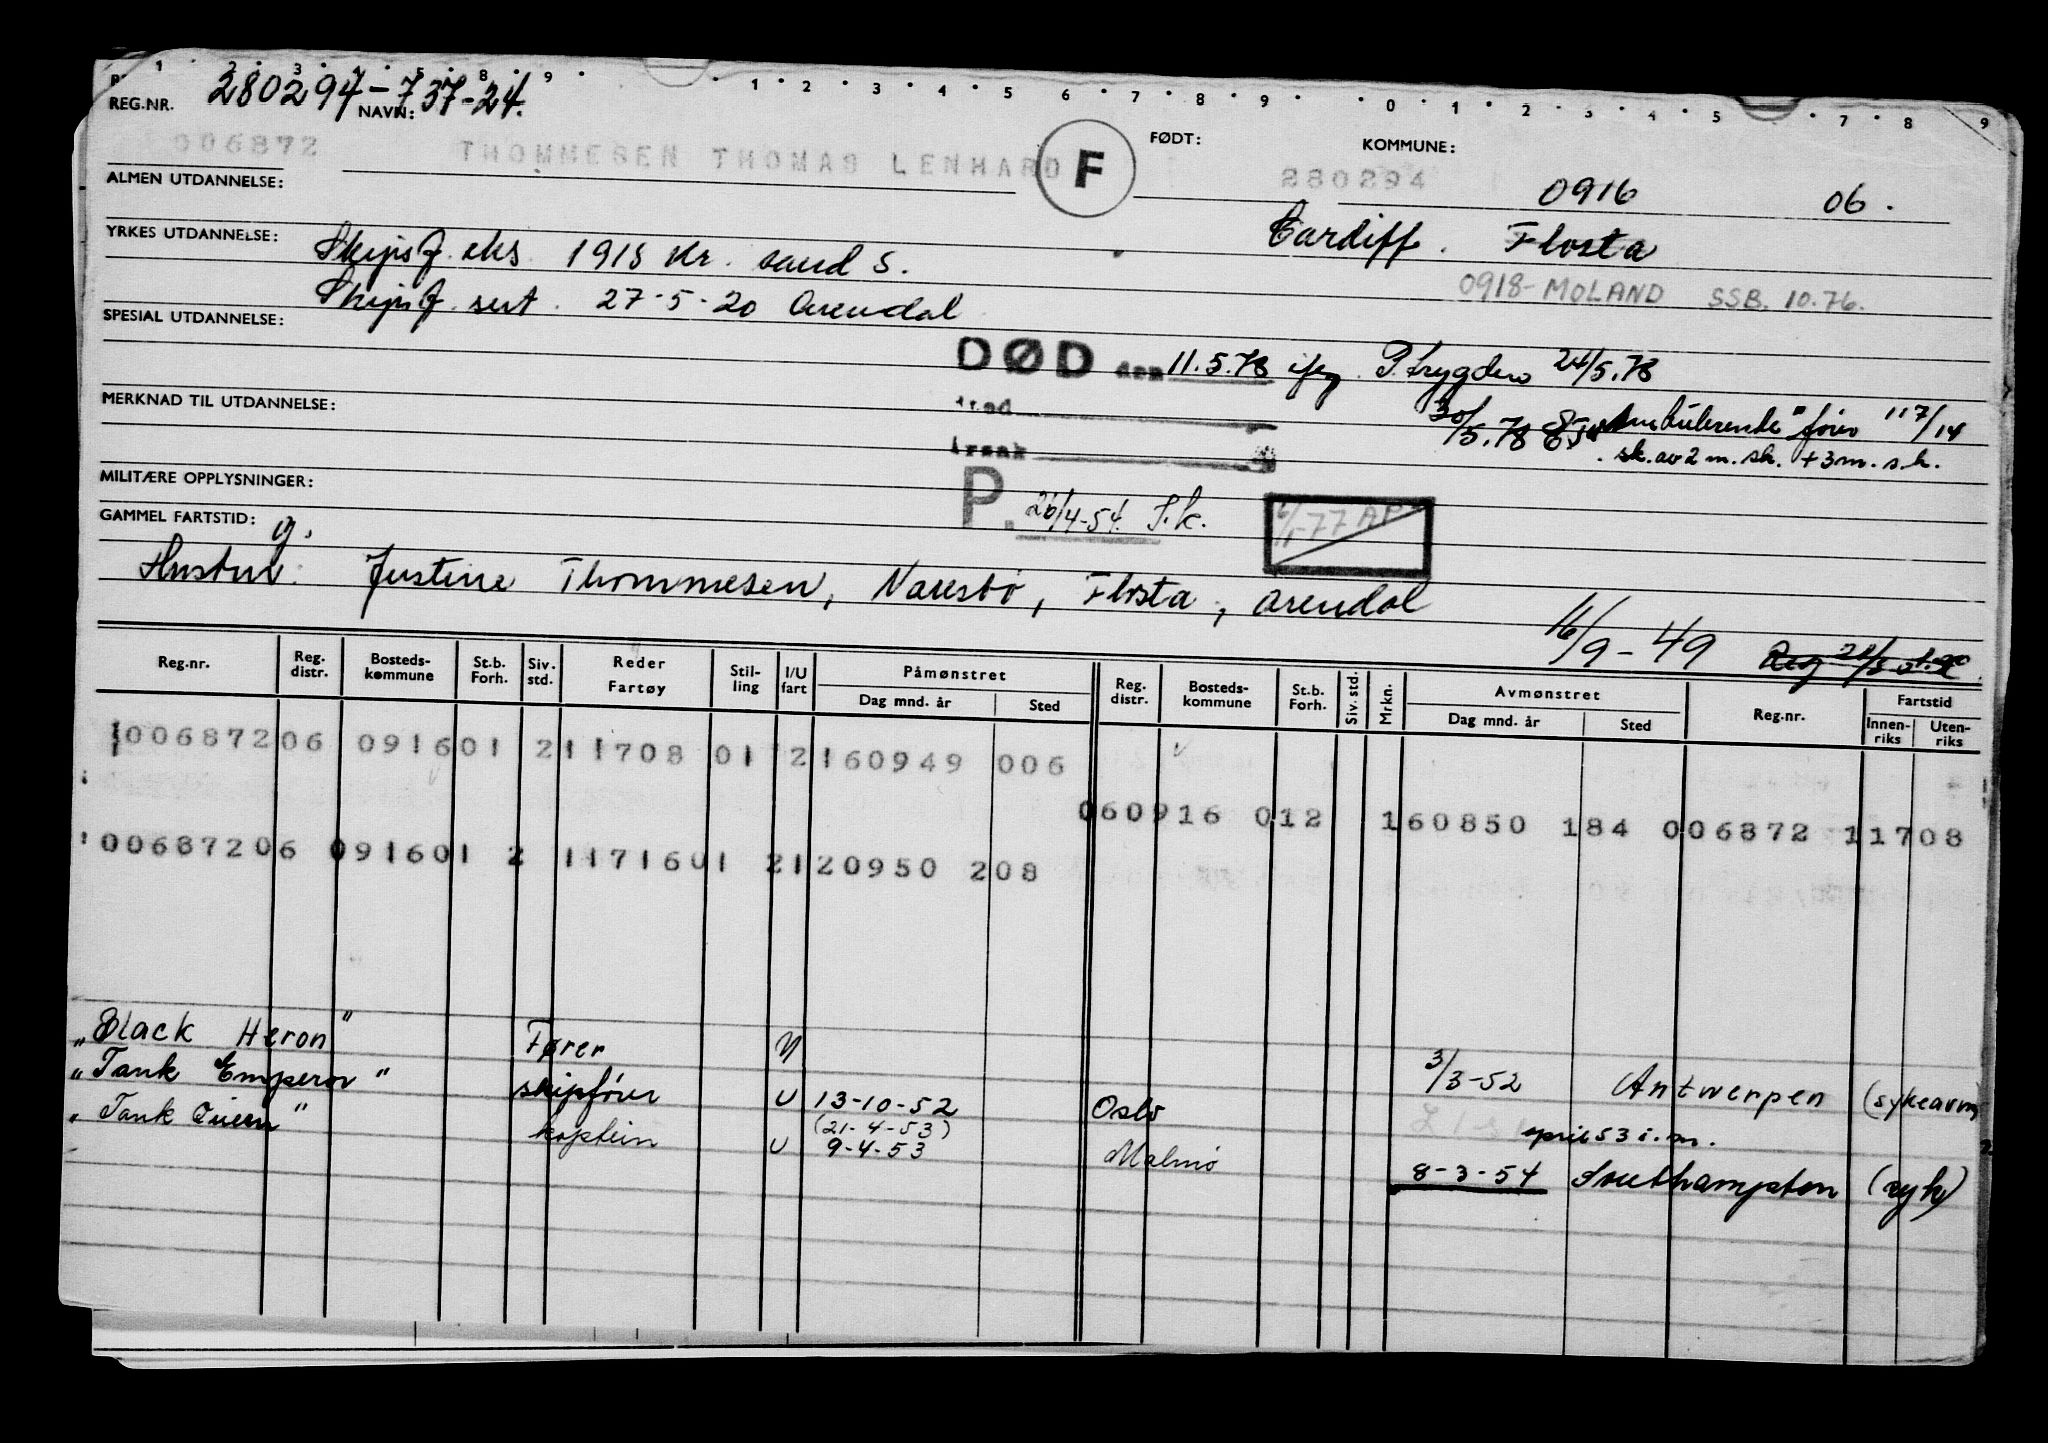 1 2 3 8 9 1 2 3 4 5 6 7 8 9 0 1 2 3 4 5 7 8 9
REG.NR. 280294-737-24. NAVN:
FØDT: KOMMUNE:
006872 THOMMESEN THOMAS LENHARD F 280294 0916 06.
ALMEN UTDANNELSE:
Cardiff. Flosta
YRKES UTDANNELSE: Skipsf. eks 1918 Kr. sand S.
0918-MOLAND SSB. 10.76.
Skipsf. sert. 27-5-20 Arendal
SPESIAL UTDANNELSE:
DØD den 11.5.78 ifg. P.trygden 24/5.78
MERKNAD TIL UTDANNELSE:
sted
30/5.78 "Ambulerende" fører 117/14
årsak
sk. av 2 m. sk. + 3 m. s.k.
MILITÆRE OPPLYSNINGER:
P. 26/4-54. S.k. 6/1-77 AP
GAMMEL FARTSTID: g.
Hustru: Justine Thommesen, Narestø, Flosta, Arendal
16/9-49
Reg.nr. Reg. distr. Bosteds-kommune St.b. Forh. Siv. std. Reder Fartøy Stil-ling I/U fart Påmønstret Dag mnd. år Sted Reg. distr. Bosteds-kommune St.b. Forh. Siv. std. Mrkn. Avmønstret Dag mnd. år Sted Reg.nr. Fartstid Innen-riks Uten-riks
006872 06 0916 01 2 11708 01 2 160949 006
06 0916 01 2 160850 184 006872 11708
006872 06 0916 01 2 11716 01 2 120950 208
"Black Heron" Fører U 3/3-52 Antwerpen (sykeavm)
"Tank Emperor" skipsfører U 13-10-52 Oslo april 53 i.m.
(21-4-53)
"Tank Queen" kaptein U 9-4-53 Malmø 8-3-54 Southampton (syk)